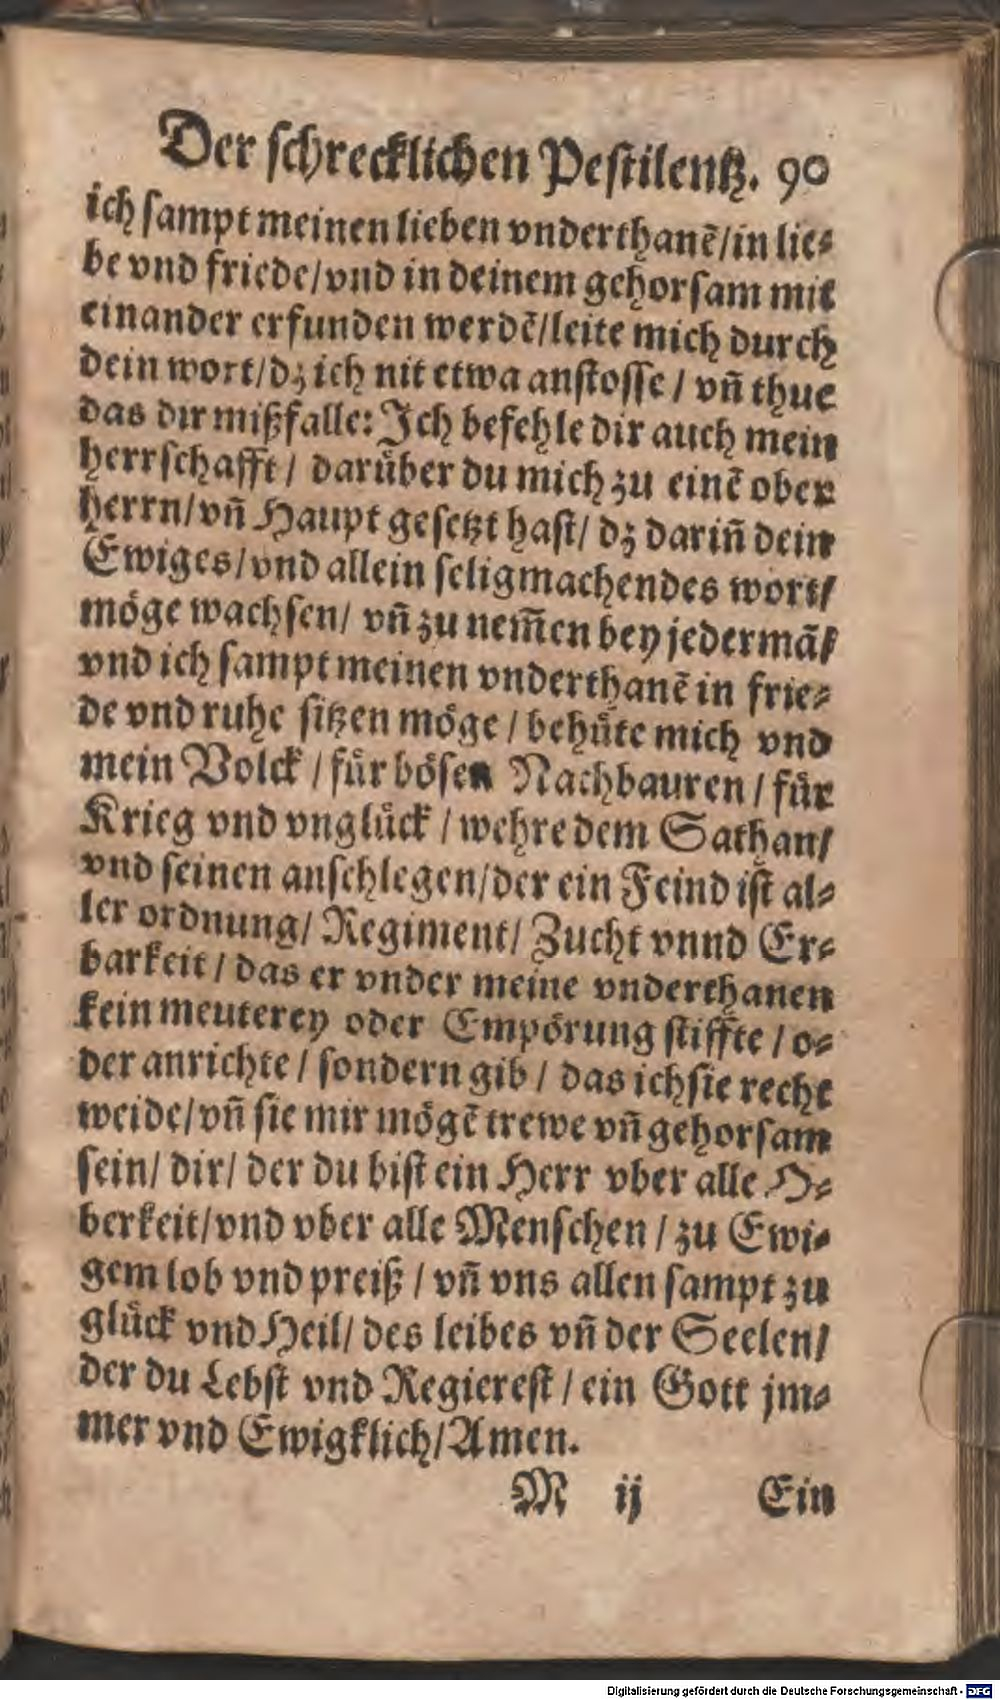 Der schrecklichen Pestilentz. 90
ich sampt meinen lieben vnderthanẽ/in lie⸗
be vnd friede/vnd in deinem gehorsam mit
einander erfunden werdẽ/leite mich durch
dein wort/dz ich nit etwa anstosse / vñ thue
das dir mißfalle: Ich befehle dir auch mein
herrschafft / darüber du mich zu einẽ ober
herrn/vñ Haupt gesetzt hast/ dz dariñ dein
Ewiges/vnd allein seligmachendes wort/
möge wachsen/ vñ zu nem̃en bey jedermã/
vnd ich sampt meinen vnderthanẽ in frie⸗
de vnd ruhe sitzen möge / behüte mich vnd
mein Volck / für bösen Nachbauren / für
Krieg vnd vnglück / wehre dem Sathan/
vnd seinen anschlegen/der ein Feind ist al⸗
ler ordnung/ Regiment/ Zucht vnnd Er⸗
barkeit / das er vnder meine vnderthanen
kein meuterey oder Empörung stiffte / o⸗
der anrichte / sondern gib / das ich sie recht
weide/vñ sie mir mögẽ trewe vñ gehorsam
sein/ dir/ der du bist ein Herr vber alle O⸗
berkeit/vnd vber alle Menschen / zu Ewi⸗
gem lob vnd preiß / vñ vns allen sampt zu
glück vnd Heil/ des leibes vñ der Seelen/
der du Lebst vnd Regierest / ein Gott jm⸗
mer vnd Ewigklich/Amen.
M ij Ein
Digitalisierung gefördert durch die Deutsche Forschungsgemeinschaft - DFG